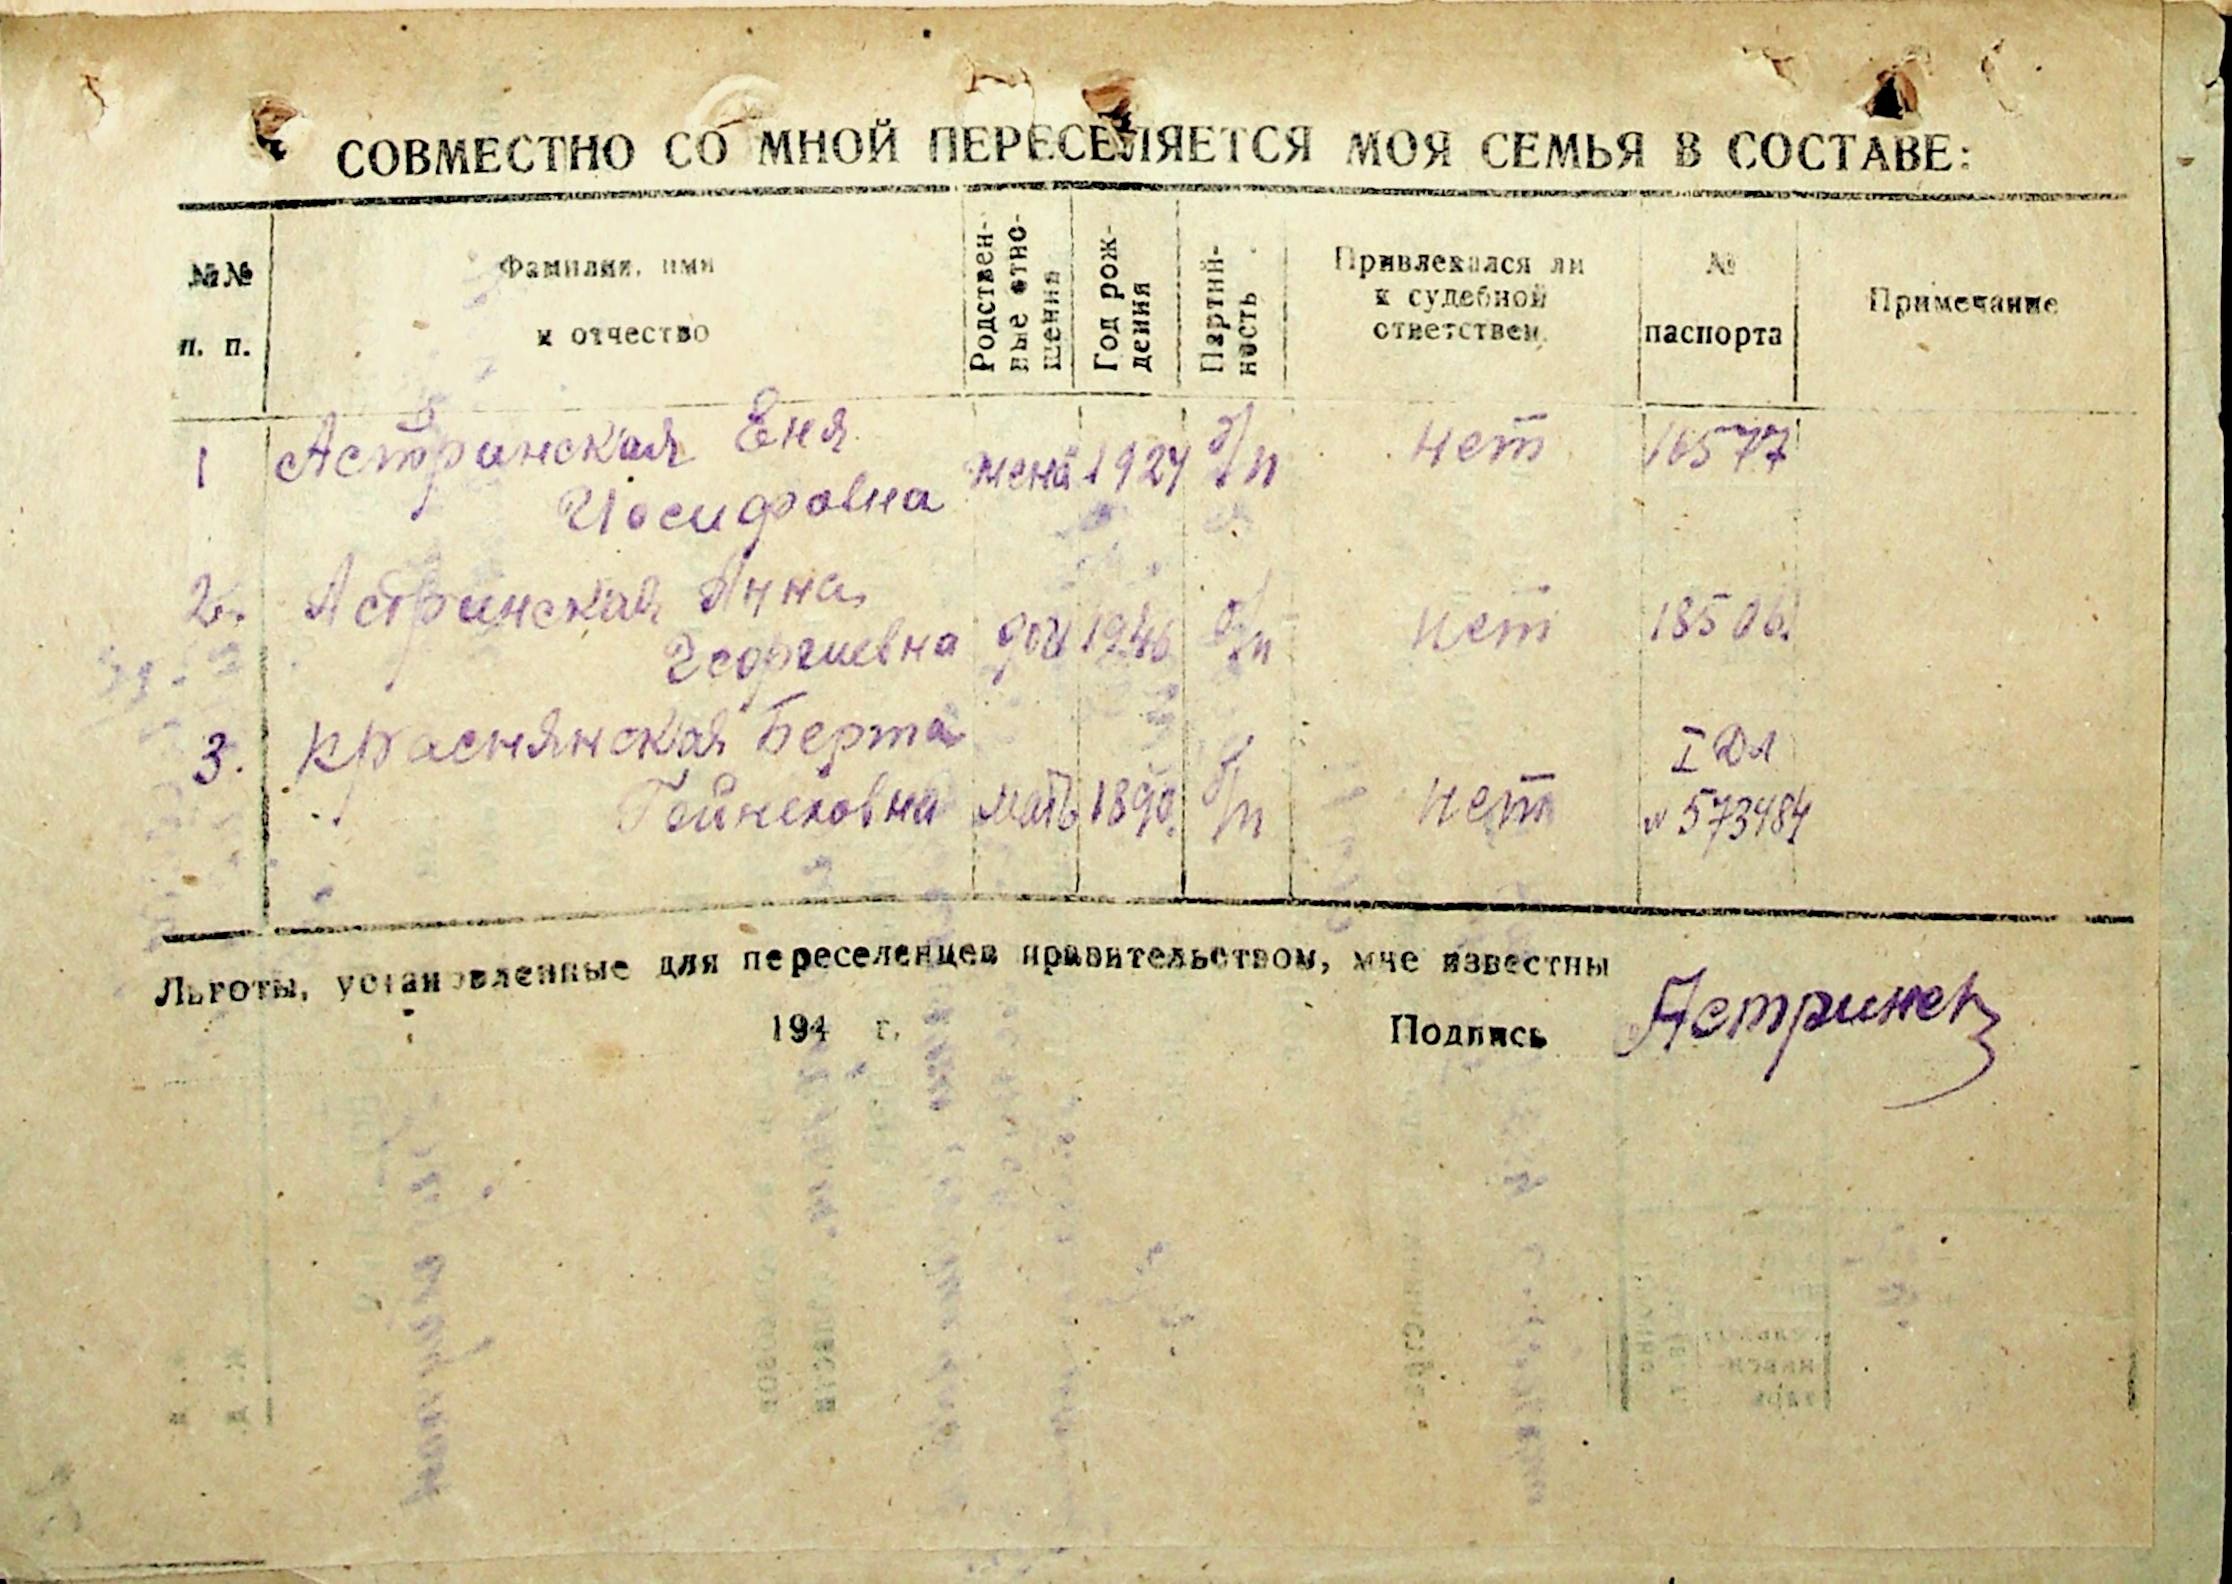 СОВМЕСТНО СО МНОЙ ПЕРЕСЕЛЯЕТСЯ МОЯ СЕМЬЯ В СОСТАВЕ:
№№ п. п.
Фамилия, имя и отчество
Родственные отношения
Год рождения
Партийность
Привлекался ли к судебной ответствен.
№ паспорта
Примечание
1 Астринская Еня Иосифовна жена 1924 б/п нет 16577
2. Астринская Анна Георгиевна доч 1946 б/п нет 18506
3. Краснянская Берта мать 1890. б/п нет I ДЛ № 573484
Льготы, установленные для переселенцев правительством, мне известны
194 г. Подпись Астринск